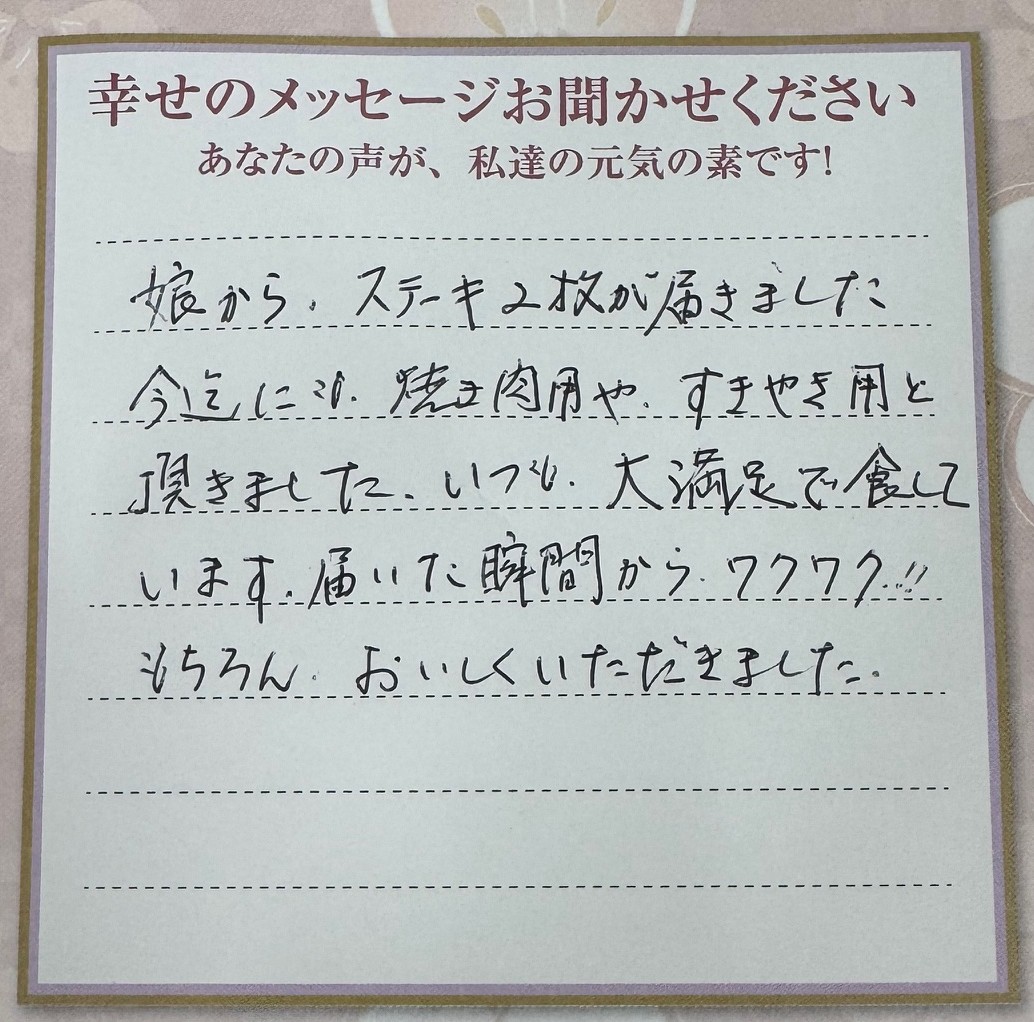 幸せのメッセージお聞かせください
あなたの声が、私達の元気の素です!
娘から、ステーキ2枚が届きました
今迄にも、焼き肉用や、すきやき用と
頂きました、いつも、大満足で食して
います。届いた瞬間から、ワクワク!!
もちろん、おいしくいただきました。